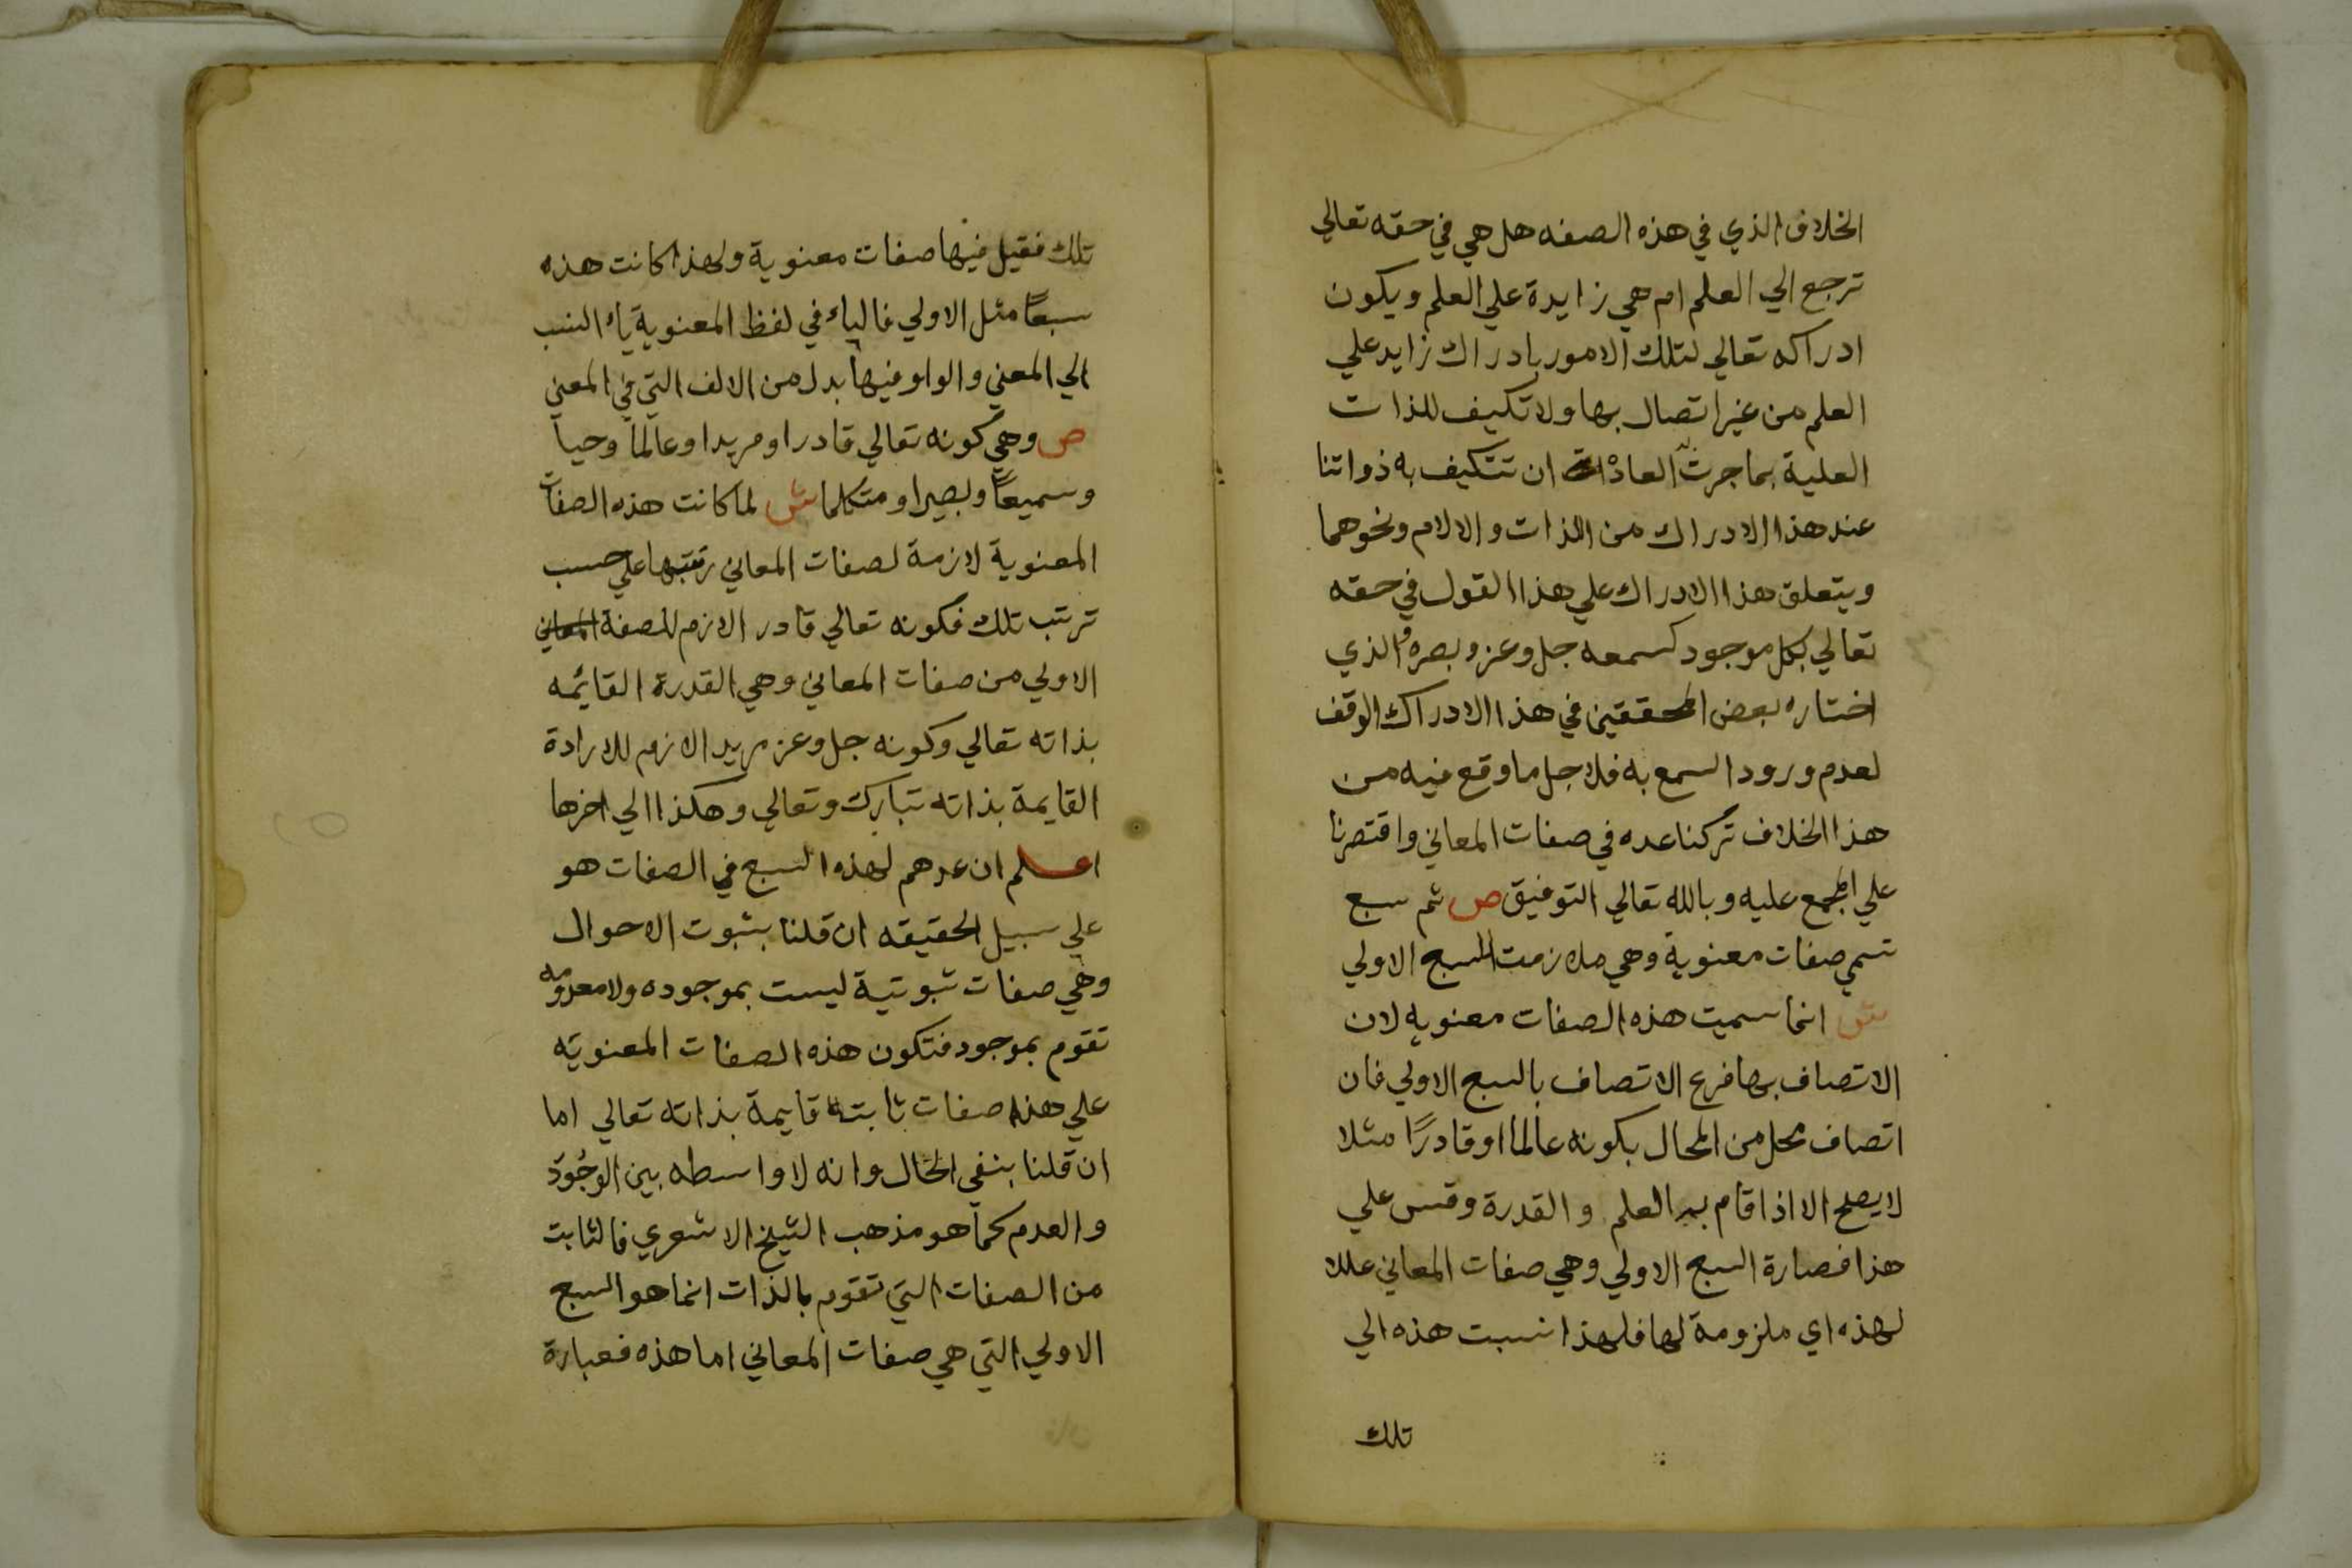 الخلاف الذي في هذه الصفه هل هي في حقه تعالي
ترجع الي العلم ام هي زايدة علي العلم ويكون
ادراكه تعالي لتلك الامور بادراك زايد علي
العلم من غير اتصال بها ولا تكيف للذات
العلية بما جرت العادة ان تتكيف به ذواتنا
عند هذا الادراك من اللذات والالام ونحوهما
ويتعلق هذا الادراك علي هذا القول في حقه
تعالي بكل موجود كسمعه جل وعز وبصره والذي
اختاره بعض المحققين في هذا الادراك الوقف
لعدم ورود السمع به فلاجل ما وقع فيه من
هذا الخلاف تركنا عده في صفات المعاني واقتصرنا
علي المجمع عليه وبالله تعالي التوفيق ص ثم سبع
تسمي صفات معنوية وهي ملازمت للسبع الاولي
ش انما سميت هذه الصفات معنويه لان
الاتصاف بها فرع الاتصاف بالسبع الاولي فان
اتصاف محل من المحال بكونه عالما او قادرًا مثلا
لا يصلح الا اذا قام به العلم والقدرة وقس علي
هذا فصارة السبع الاولي وهي صفات المعاني عللا
لهذه اي ملزومة لها فلهذا نسبت هذه الي
تلك
تلك فقيل فيها صفات معنوية ولهذا كانت هذه
سبعًا مثل الاولي فالياء في لفظ المعنوية ياء النسب
الي المعني والواو فيها بدل من الالف التي في المعني
ص وهي كونه تعالي قادرا ومريدا وعالماً وحياً
وسميعاً وبصيرا ومتكلما ش لما كانت هذه الصفات
المعنوية لازمة لصفات المعاني رتبها علي حسب
ترتب تلك فكونه تعالي قادر الازم للصفة المعاني
الاولي من صفات المعاني وهي القدرة القائمه
بذاته تعالي وكونه جل وعز مريد الازم للارادة
القايمة بذاته تبارك وتعالي وهكذا الي اخرها
اعلم ان عدهم لهذه السبع في الصفات هو
علي سبيل الحقيقه ان قلنا بثبوت الاحوال
وهي صفات ثبوتية ليست بموجوده ولا معدومه
تقوم بموجود فتكون هذه الصفات المعنويه
علي هذا صفات ثابتة قايمة بذاته تعالي اما
ان قلنا بنفي الحال وانه لا واسطه بين الوجُود
والعدم كما هو مذهب الشيخ الاشعري فالثابت
من الصفات التي تقوم بالذات انما هو السبع
الاولي التي هي صفات المعاني اما هذه فعبارة